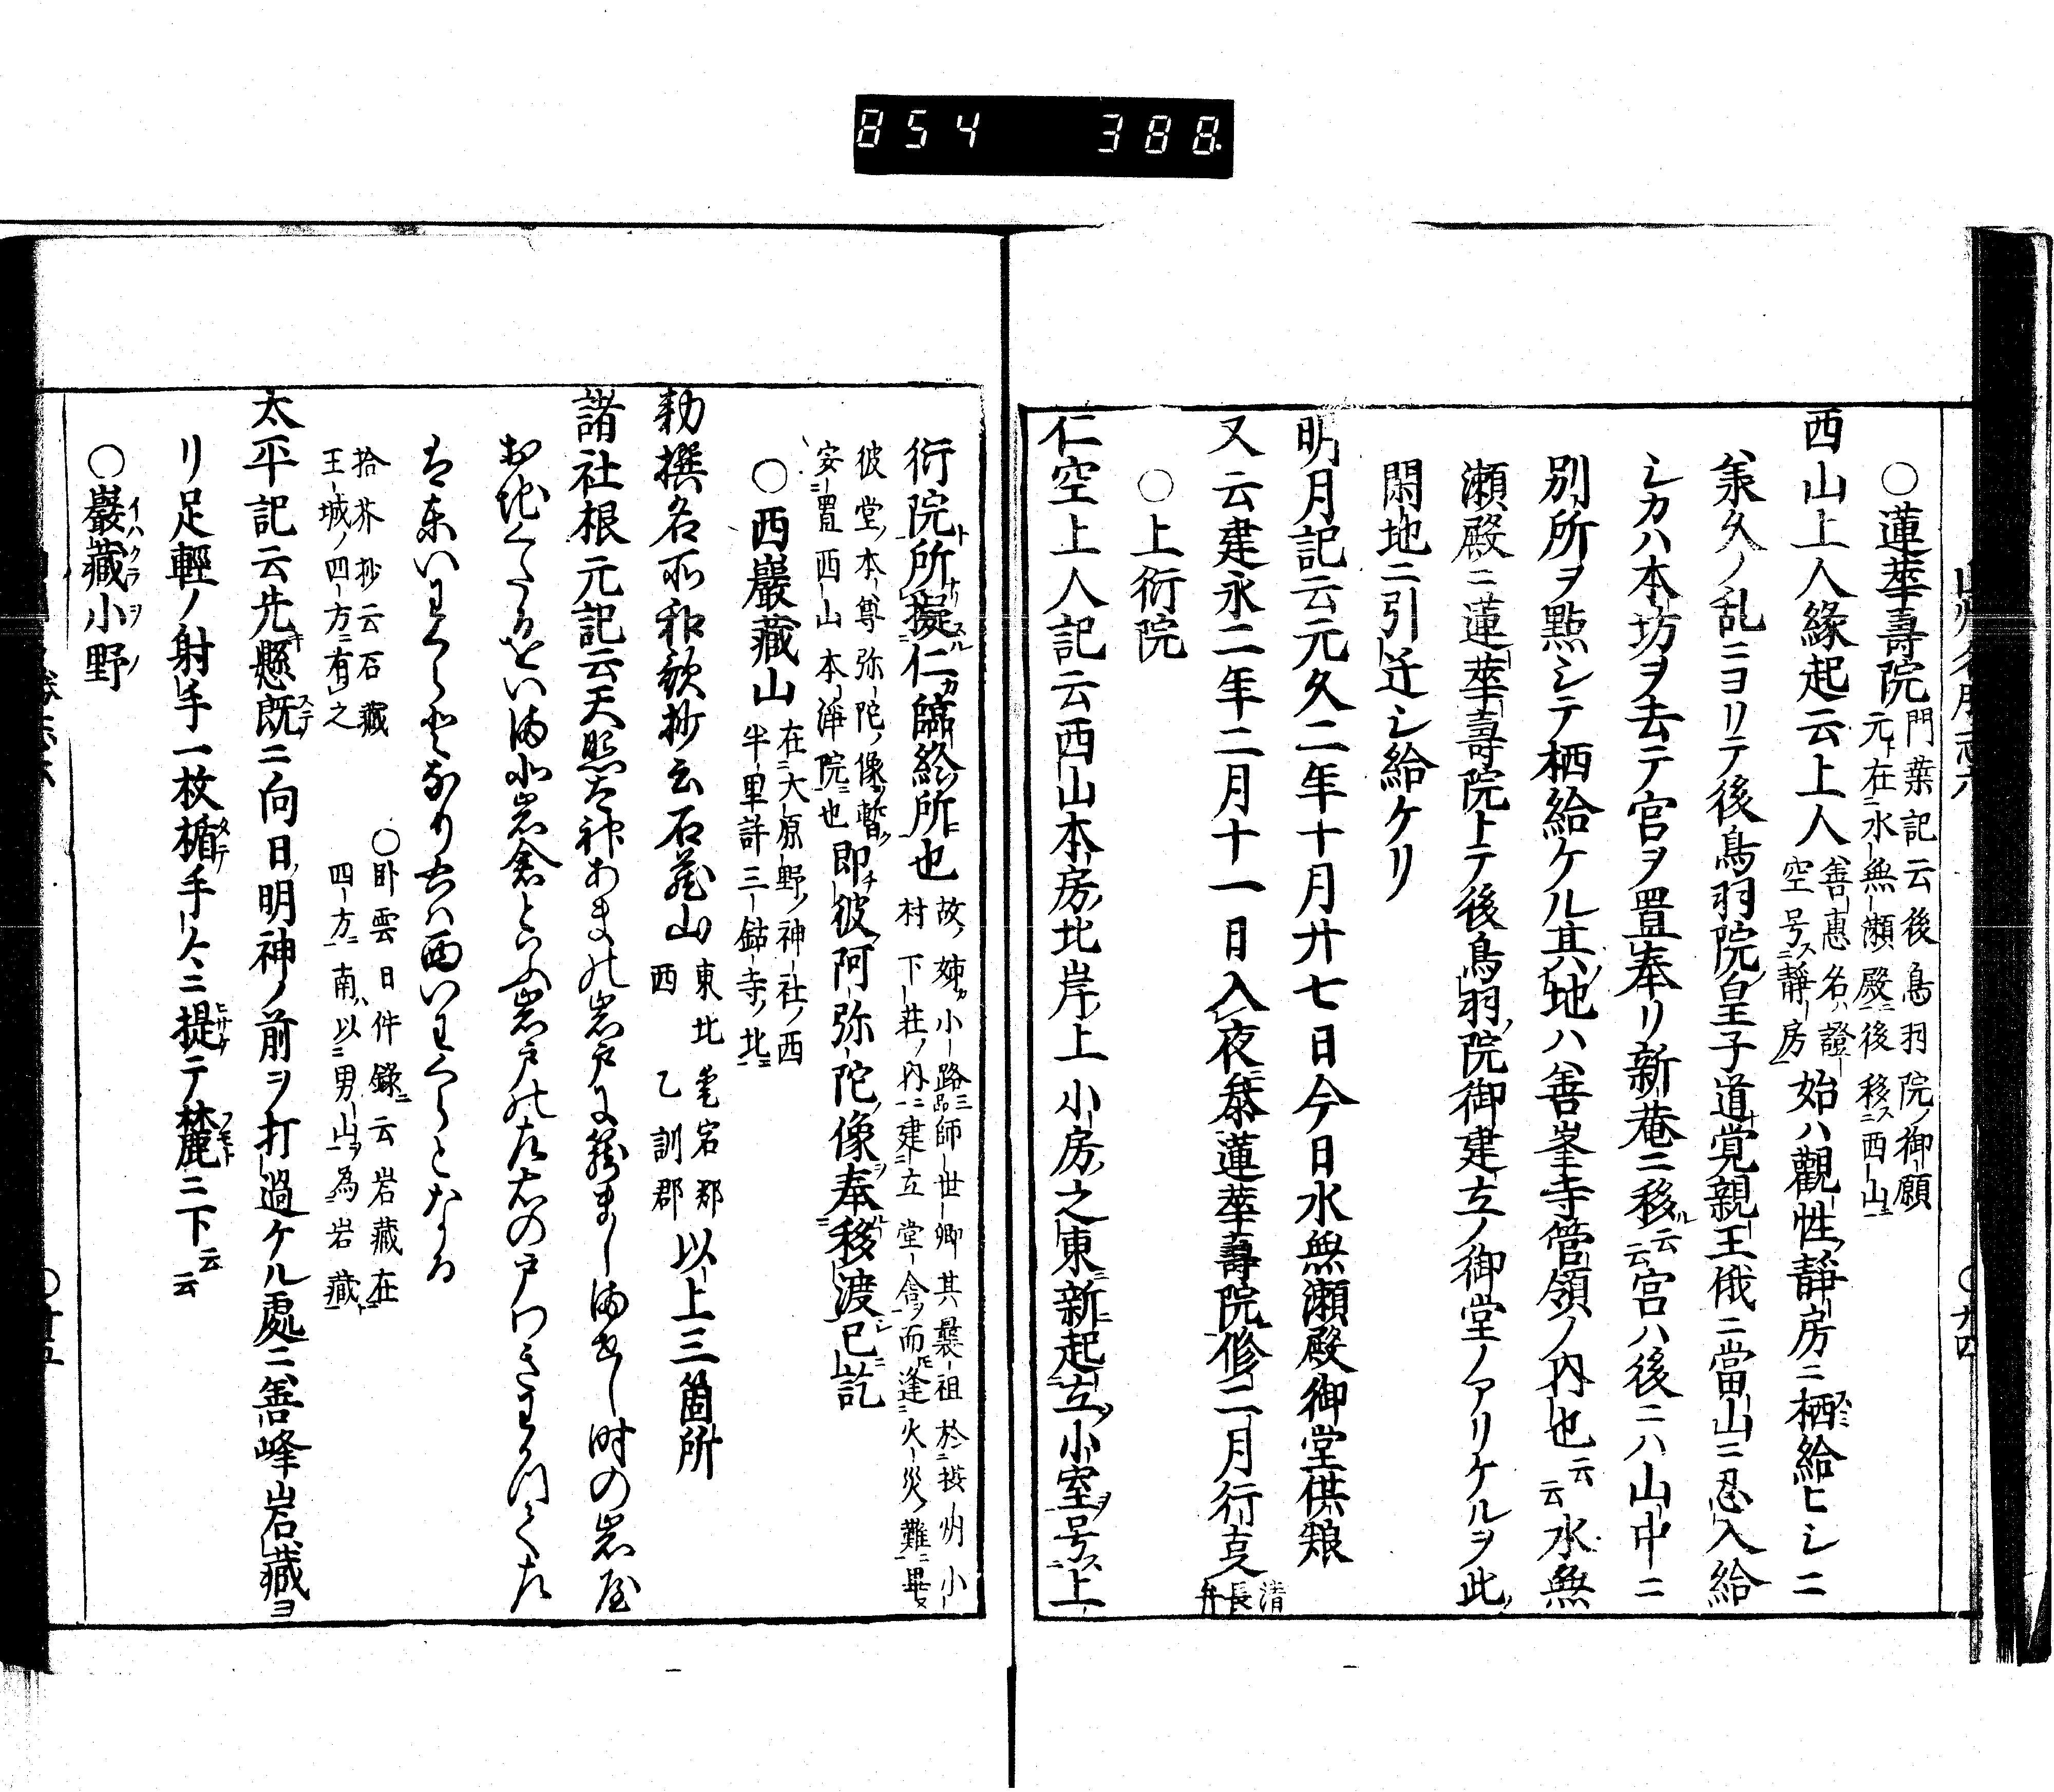 854 388
○蓮華壽院
門葉記云後鳥羽院ノ御願
元在水無瀬殿後移ス西山
西山上人縁起云上人
善惠名ハ證
空号ス靜房
始ハ觀性靜房ニ栖給ヒシニ
羕久ノ乱ニヨリテ後鳥羽院皇子道覚親王俄ニ當山ニ忍入給
シカハ本坊ヲ去テ宮ヲ置奉リ新菴ニ移ル云云宮ハ後ニハ山中ニ
別所ヲ點シテ栖給ケル其地ハ善峯寺管領ノ内也云云水無
瀬殿ニ蓮華壽院トテ後鳥羽院御建立ノ御堂ノアリケルヲ此
閑地ニ引迁シ給ケリ
明月記云元久二年十月廿七日今日水無瀬殿御堂供粮
又云建永二年二月十一日入夜叅蓮華壽院修二月行㕝
清長弁
○上衍院
仁空上人記云西山本房北岸上小房之東新起立小室号ス上
衍院所擬仁臨終所也
故姉小路三品師世卿其曩祖於摂州小
村下荘ノ内建立堂舎而逢火災難畢
彼堂ノ本尊弥陀ノ像暫
安置西山本淨院也
即彼阿弥陀像奉移渡已訖
○西巖藏山
在大原野ノ神社ノ西
半里許三鈷寺ノ北
勅撰名所和歌抄云石蔵山
東北
西
愛宕郡
乙訓郡
以上三箇所
諸社根元記云天照大神あまの岩戸に籠ましませし時の岩屋
太平記云先懸既ニ向日明神ノ前ヲ打過ケル處ニ善峰岩藏ヨ
リ足輕ノ射手一枚楯手々ニ提テ麓ニ下云云
拾芥抄云石藏
王城ノ四方ニ有之
○卧雲日件録云岩藏在
四方南ハ以男山為岩藏
○巖藏小野
イハクラヲノ